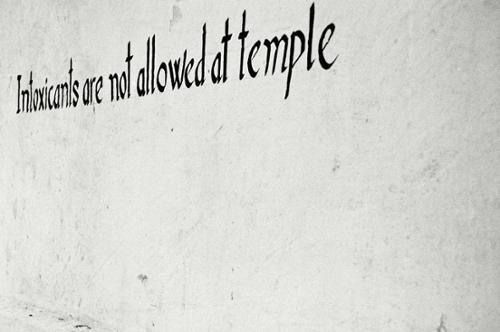 Intoxicants are not allowed at temple